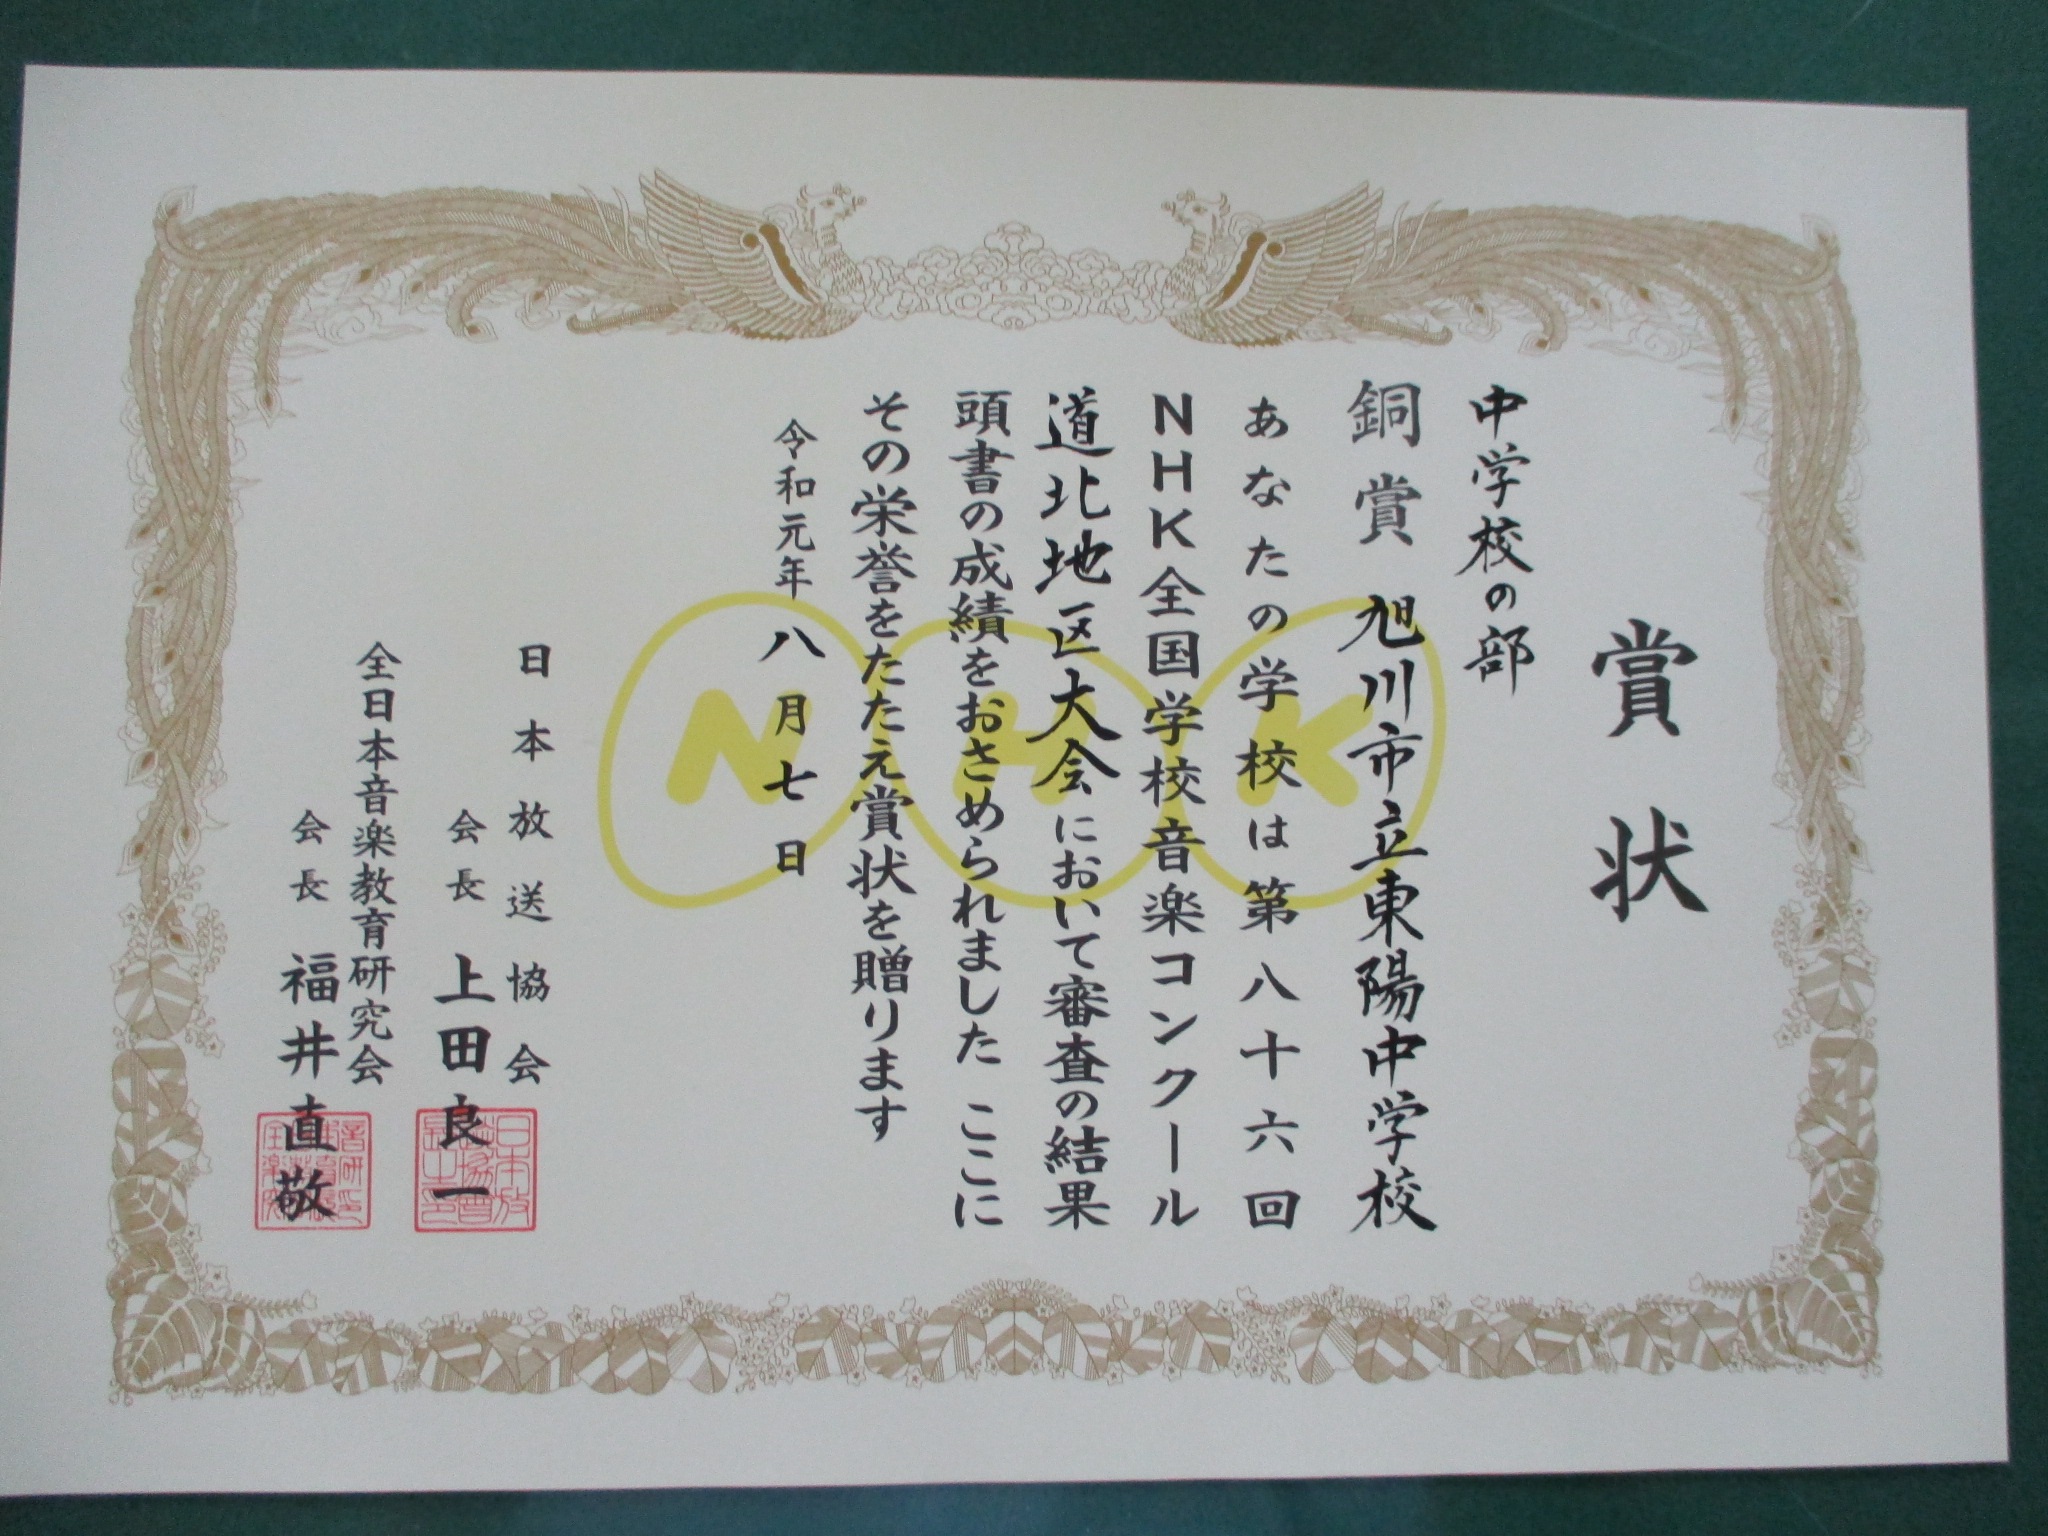 賞状
中学校の部
銅賞 旭川市立東陽中学校
あなたの学校は第八十六回
NHK全国学校音楽コンクール
道北地区大会において審査の結果
頭書の成績をおさめられました ここに
その栄誉をたたえ賞状を贈ります
令和元年八月七日
日本放送協会
会長 上田良一
全日本音楽教育研究会
会長 福井直敬
NHK